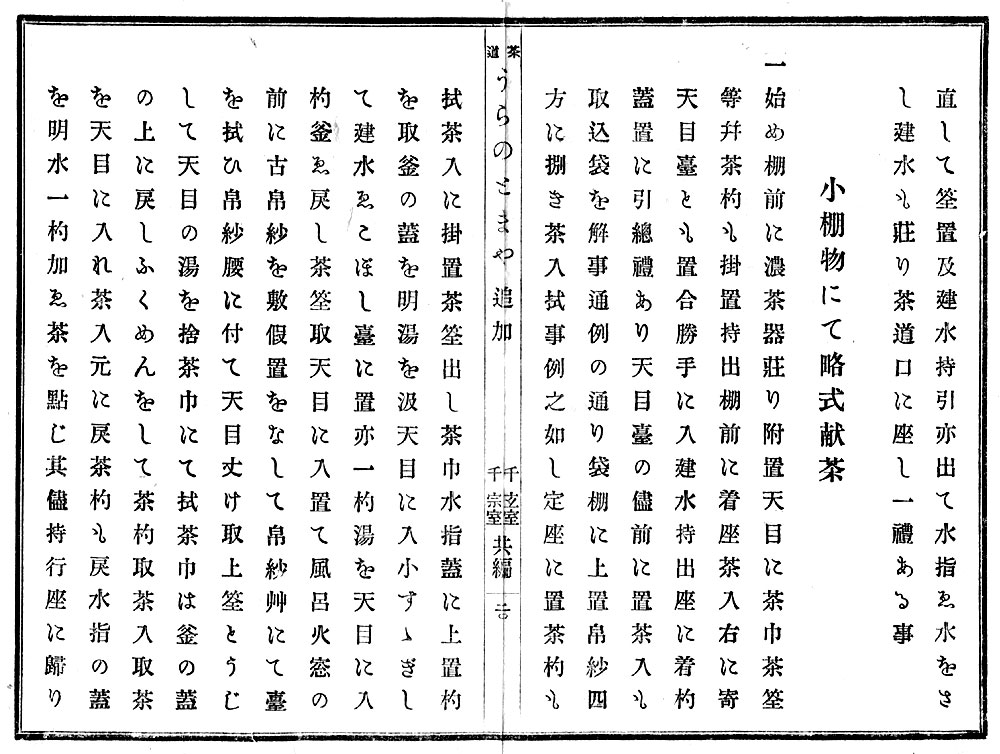 直して筌置及建水持引亦出て水指ゑ水をさ
し建水も莊り茶道口に座し一禮ある事
小棚物にて略式献茶
一始め棚前に濃茶器莊り附置天目に茶巾茶筌
等幷茶杓も掛置持出棚前に着座茶入右に寄
天目臺とも置合勝手に入建水持出座に着杓
蓋置に引總禮あり天目臺の儘前に置茶入も
取込袋を解事通例の通り袋棚に上置帛紗四
方に捌き茶入拭事例之如し定座に置茶杓も
茶道 うらのとまや 追加 千玄室 千宗室 共編 二十
拭茶入に掛置茶筌出し茶巾水指蓋に上置杓
を取釜の蓋を明湯を汲天目に入小すゝぎし
て建水ゑこぼし臺に置亦一杓湯を天目に入
杓釜ゑ戻し茶筌取天目に入置て風呂火窓の
前に古帛紗を敷假置をなして帛紗艸にて臺
を拭ひ帛紗腰に付て天目丈け取上筌とうじ
して天目の湯を捨茶巾にて拭茶巾は釜の蓋
の上に戻しふくめんをして茶杓取茶入取茶
を天目に入れ茶入元に戻茶杓も戻水指の蓋
を明水一杓加ゑ茶を點じ其儘持行座に歸り